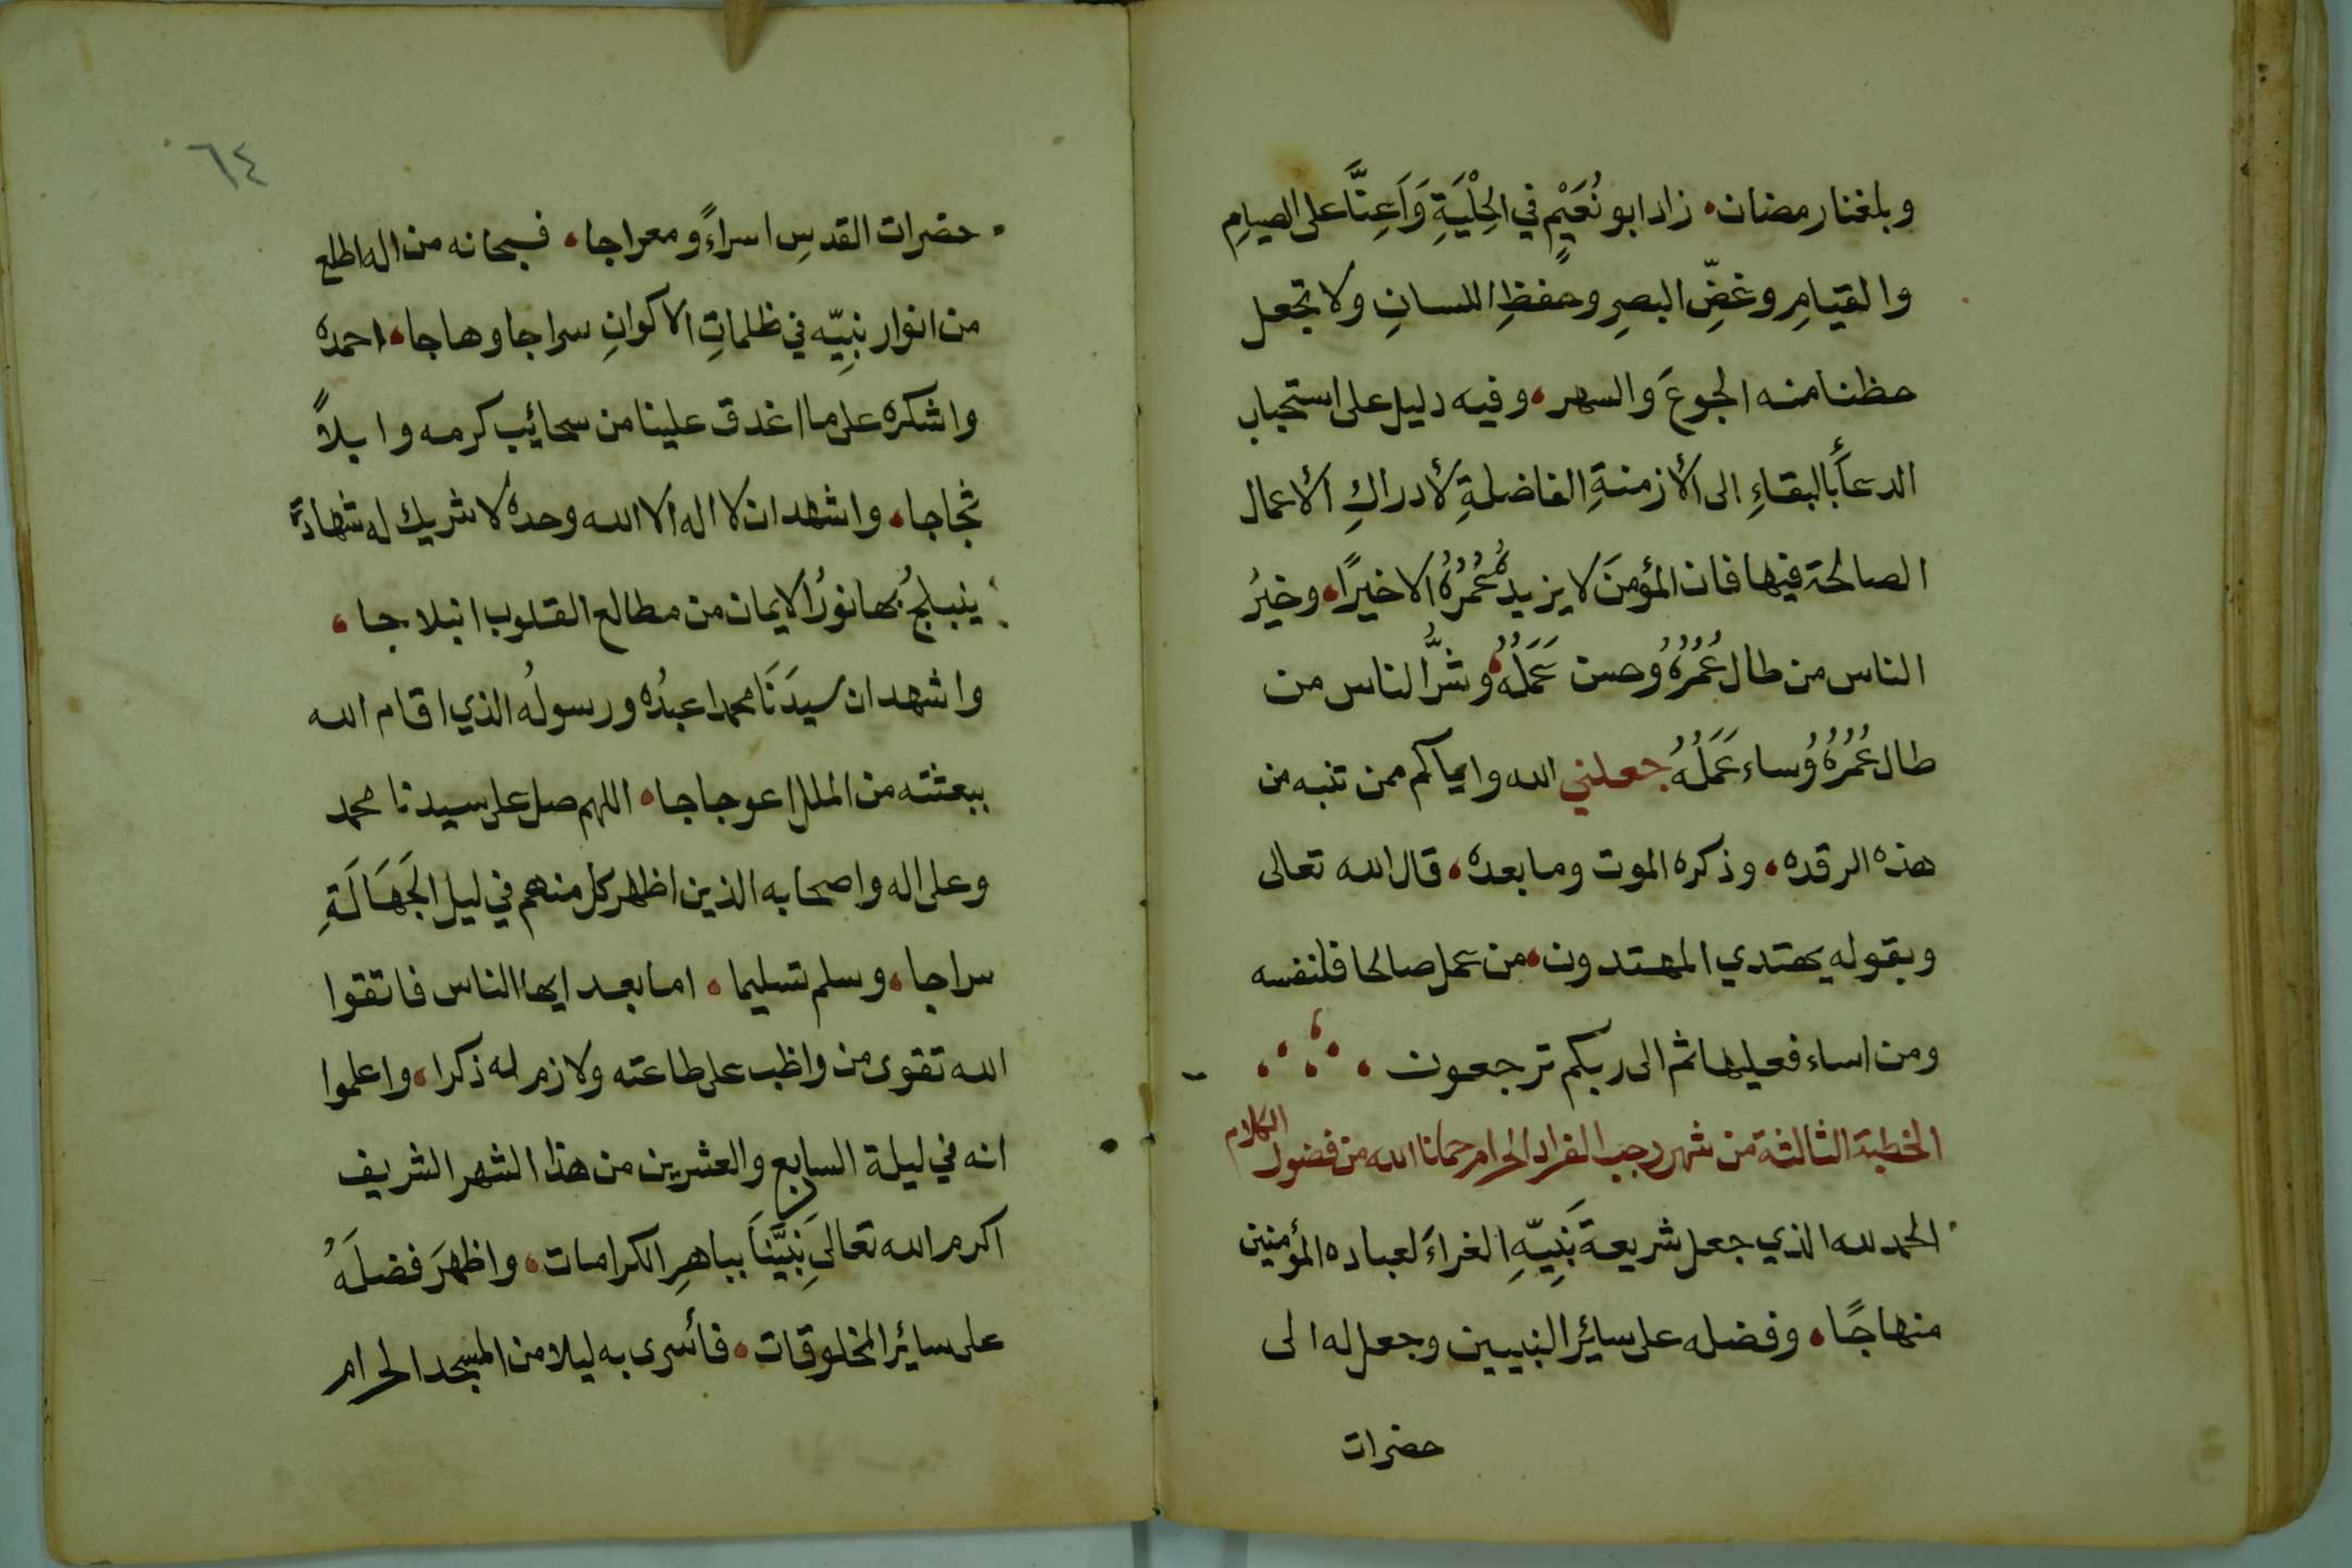 وبلغنا رمضان، زاد ابو نُعَيْمٍ في الحِلْيَةِ وَاَعِنَّا على الصيامِ
والقيامِ وغضِّ البصرِ وحفظِ اللسانِ ولا تجعل
حظنا منه الجوعَ والسهر، وفيه دليل على استحباب
الدعآءِ بالبقاءِ الى الأزمنةِ الفاضلةِ لأدراكِ الأعمال
الصالحة فيها فان المؤمنَ لا يزيدُ عُمُرُهُ الا خيرًا، وخيرُ
الناس من طال عُمُرُهُ وحسن عَمَلُهُ، وشرُّ الناس من
طال عُمُرُهُ وساء عَمَلُهُ جعلني الله واياكم ممن تنبه من
هذه الرقده، وذكره الموت وما بعده، قال الله تعالى
وبقوله يهتدي المهتدون، من عمل صالحا فلنفسه
ومن اساء فعليها ثم الى ربكم ترجعون،
الخطبة الثالثة من شهر رجب الفراد الحرام حمانا الله من فضول الكلام
الحمد لله الذي جعل شريعة نَبِيِّهِ الغراءَ لعباده المؤمنين
منهاجًا، وفضله على سائر النبيين وجعل له الى
حضرات
٦٤
حضرات القدسِ اسراءً ومعراجا، فسبحانه من اله اطلع
من انوار نبِيّه في ظلماتِ الاكوانِ سراجا وهاجا، احمده
واشكره على ما اغدق علينا من سحائب كرمه وابلاً
ثجاجا، واشهد ان لا اله الا الله وحده لا شريك له شهادةً
ينبلجُ بها نورُ الايمان من مطالع القلوب انبلاجا،
واشهد ان سيدَنَا محمدا عبدُه ورسولُه الذي اقام الله
ببعثته من الملل اعوجاجا، اللهم صل على سيدنا محمد
وعلى اله واصحابه الذين اظهر كل منهم في ليل الجَهَالَةِ
سراجا، وسلم تسليما، اما بعد ايها الناس فاتقوا
الله تقوى من واظب على طاعته ولازم له ذكرا، واعلموا
انه في ليلة السابع والعشرين من هذا الشهر الشريف
اكرم الله تعالى نَبِيَّنَا بباهرِ الكرامات، واظهرَ فضلَهُ
على سائر المخلوقات، فأسرى به ليلا من المسجد الحرام